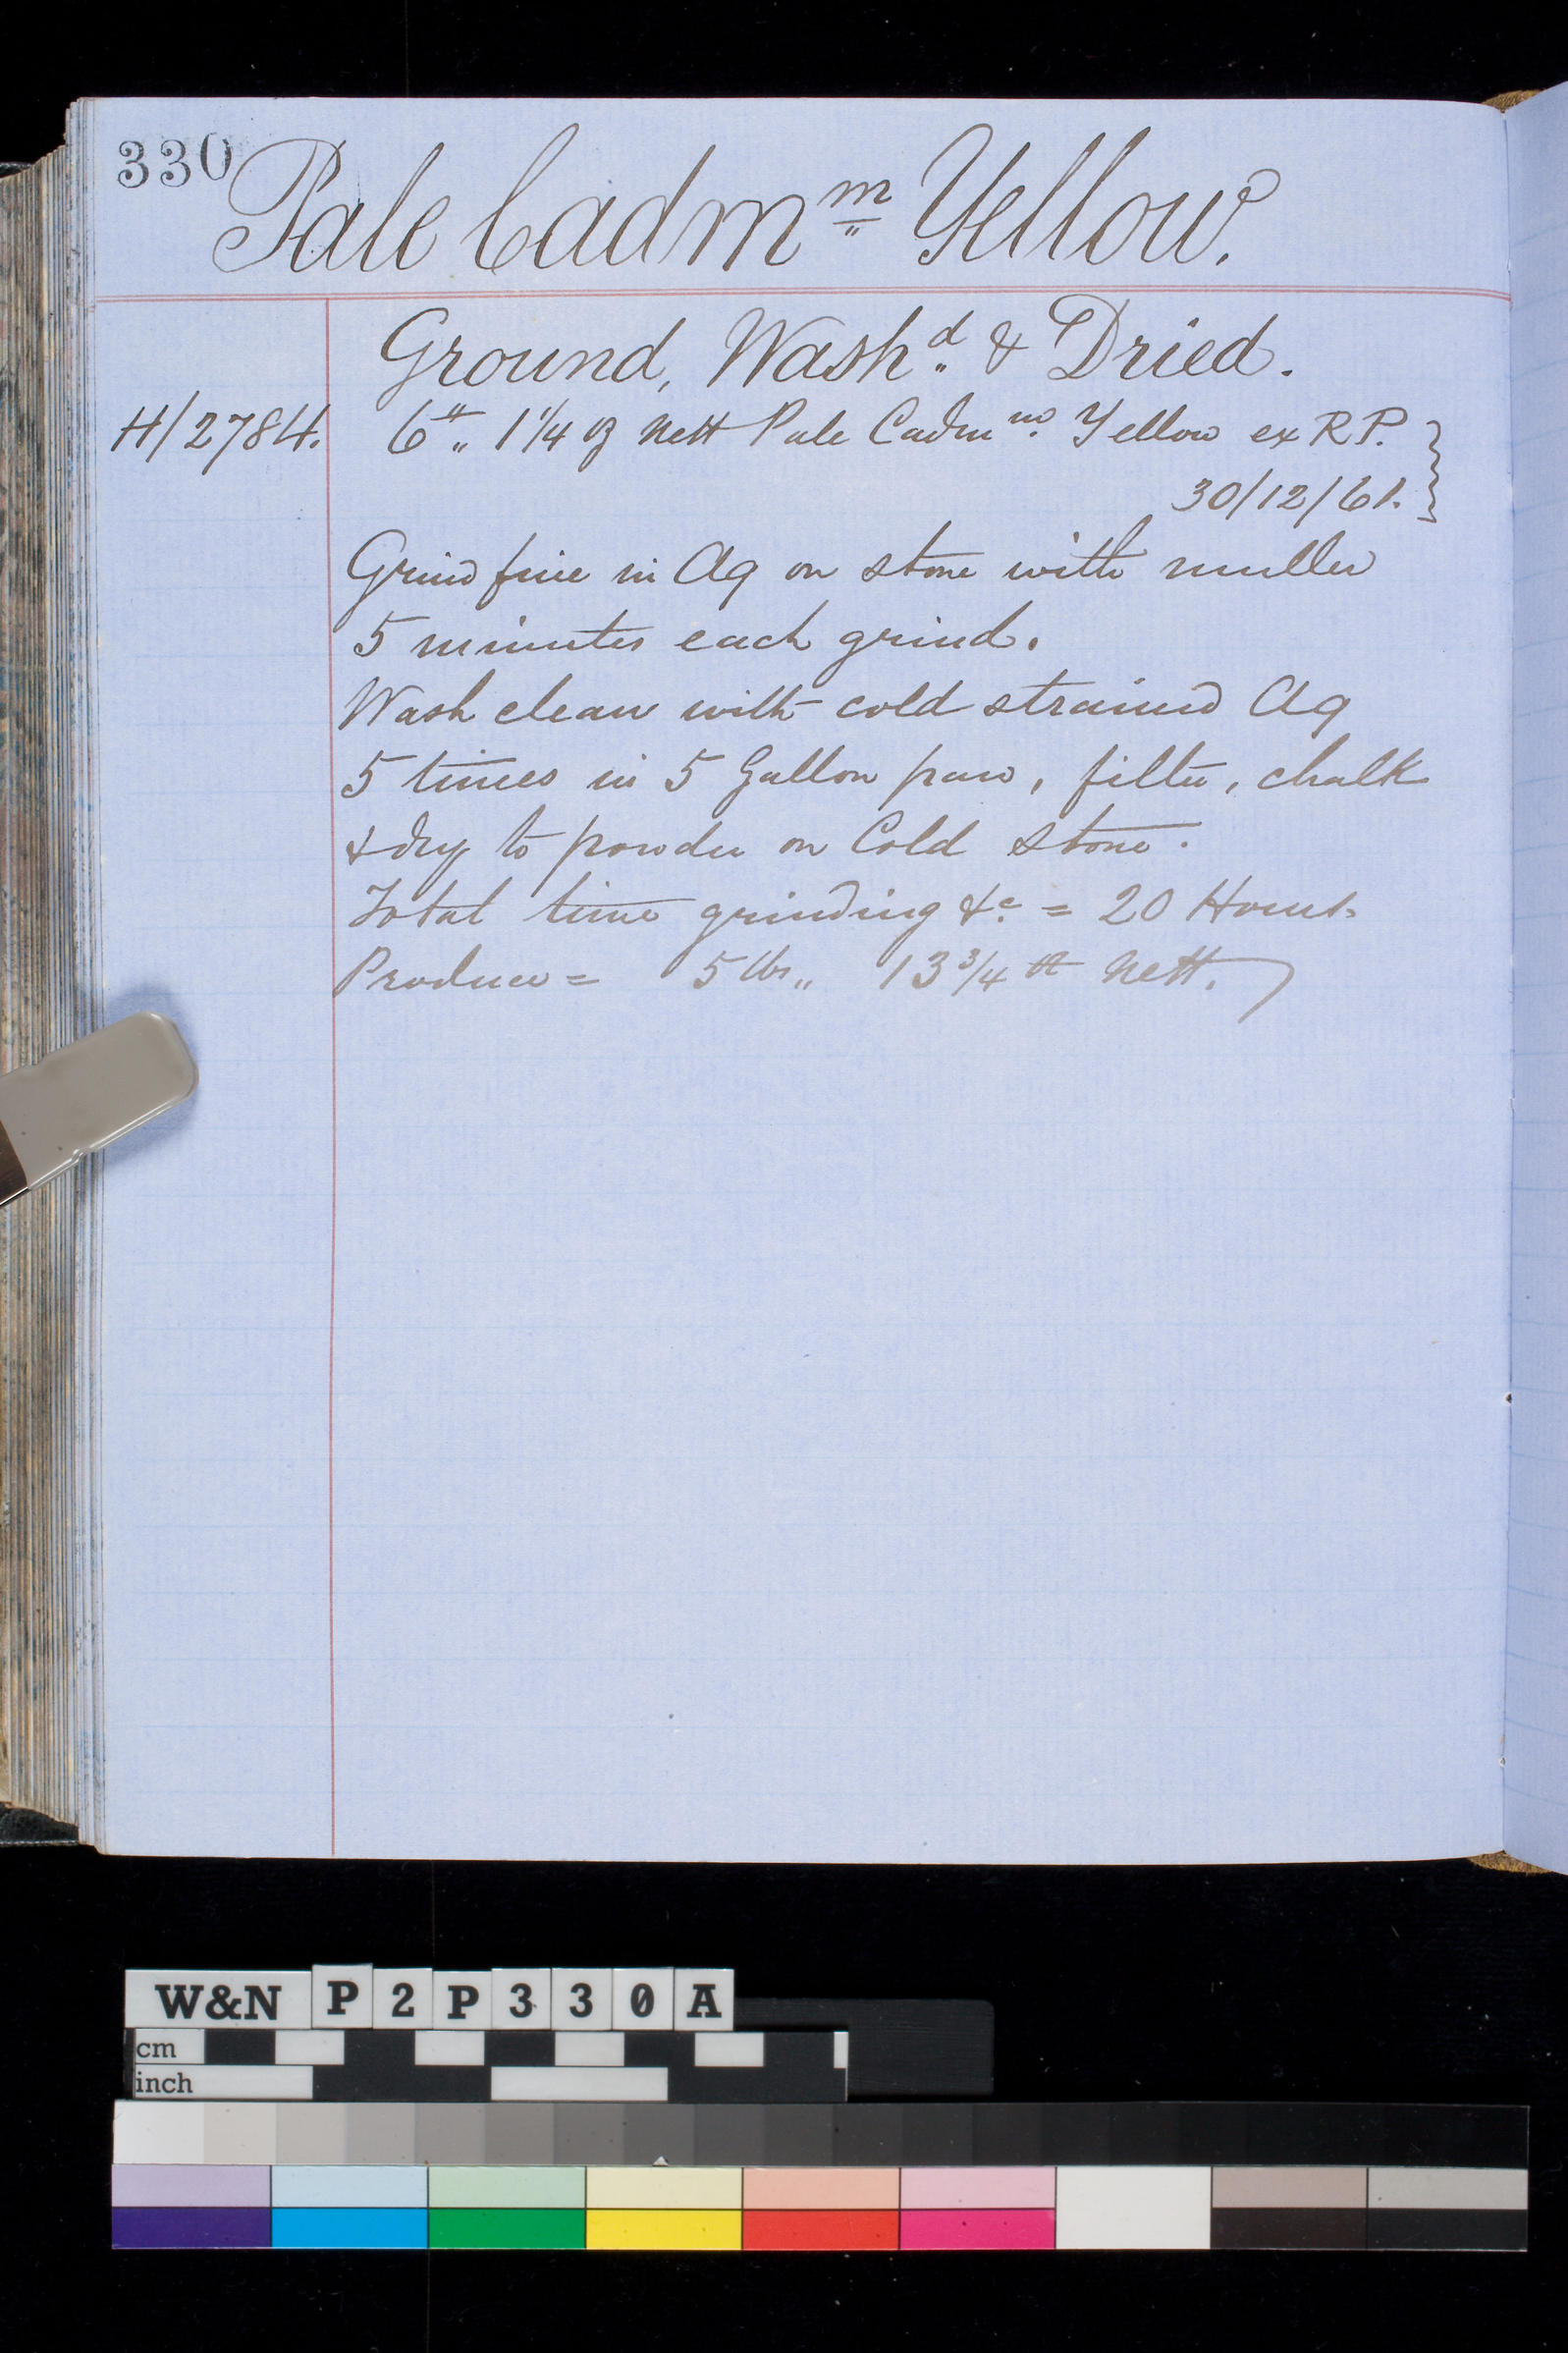 330
Pale Cadmm Yellow.
Ground, Washd. & Dried.
H/2784. 6 lb 1 1/4 oz Nett Pale Cadmm. Yellow ex R P.
30/12/61.
Grind fine in Aq on stone with muller
5 minutes each grind.
Wash clean with cold strained Aq
5 times in 5 Gallon pan, filter, chalk
& dry to powder on Cold stone.
Total time grinding &c. = 20 Hours.
Produce = 5 lbs 13 3/4 Nett.
W&N P2P330A
cm
inch